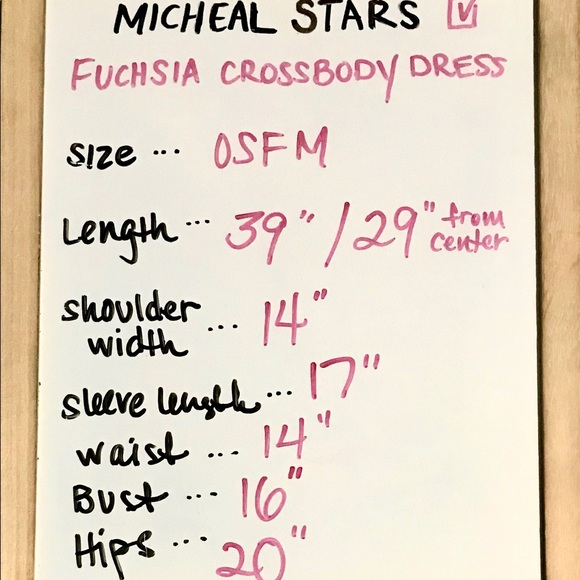 MICHEAL STARS ☑
FUCHSIA CROSSBODY DRESS
size ... OSFM
Length ... 39" / 29" from center
shoulder width ... 14"
sleeve length ... 17"
waist ... 14"
Bust ... 16"
Hips ... 20"